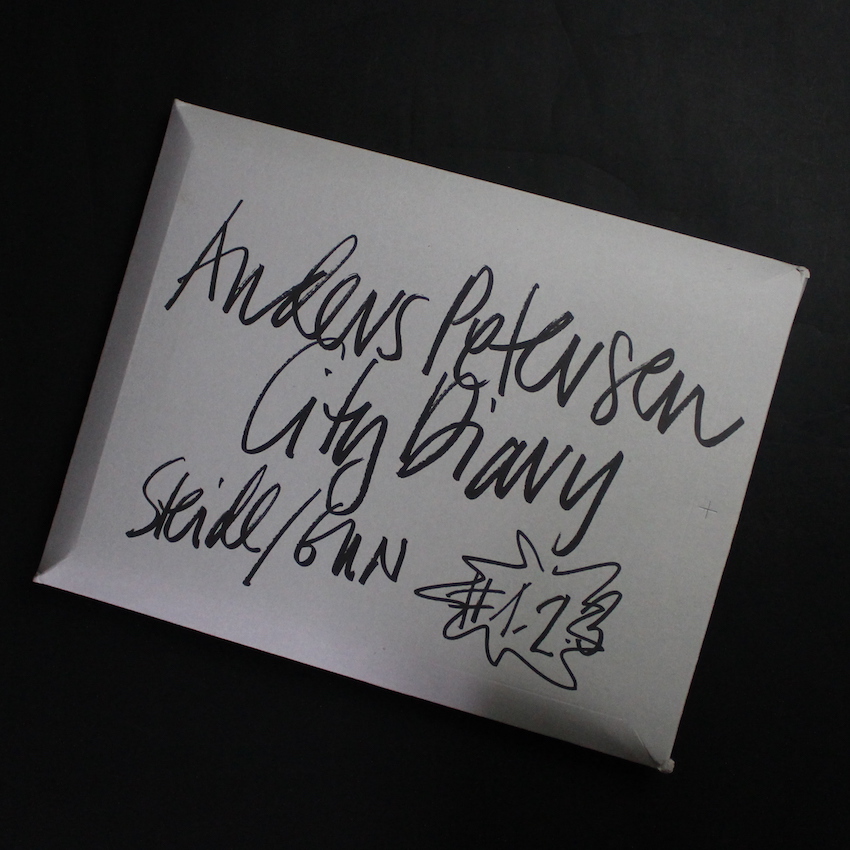 Anders Petersen
City Diary
Steidl/GUN
#1.2.3